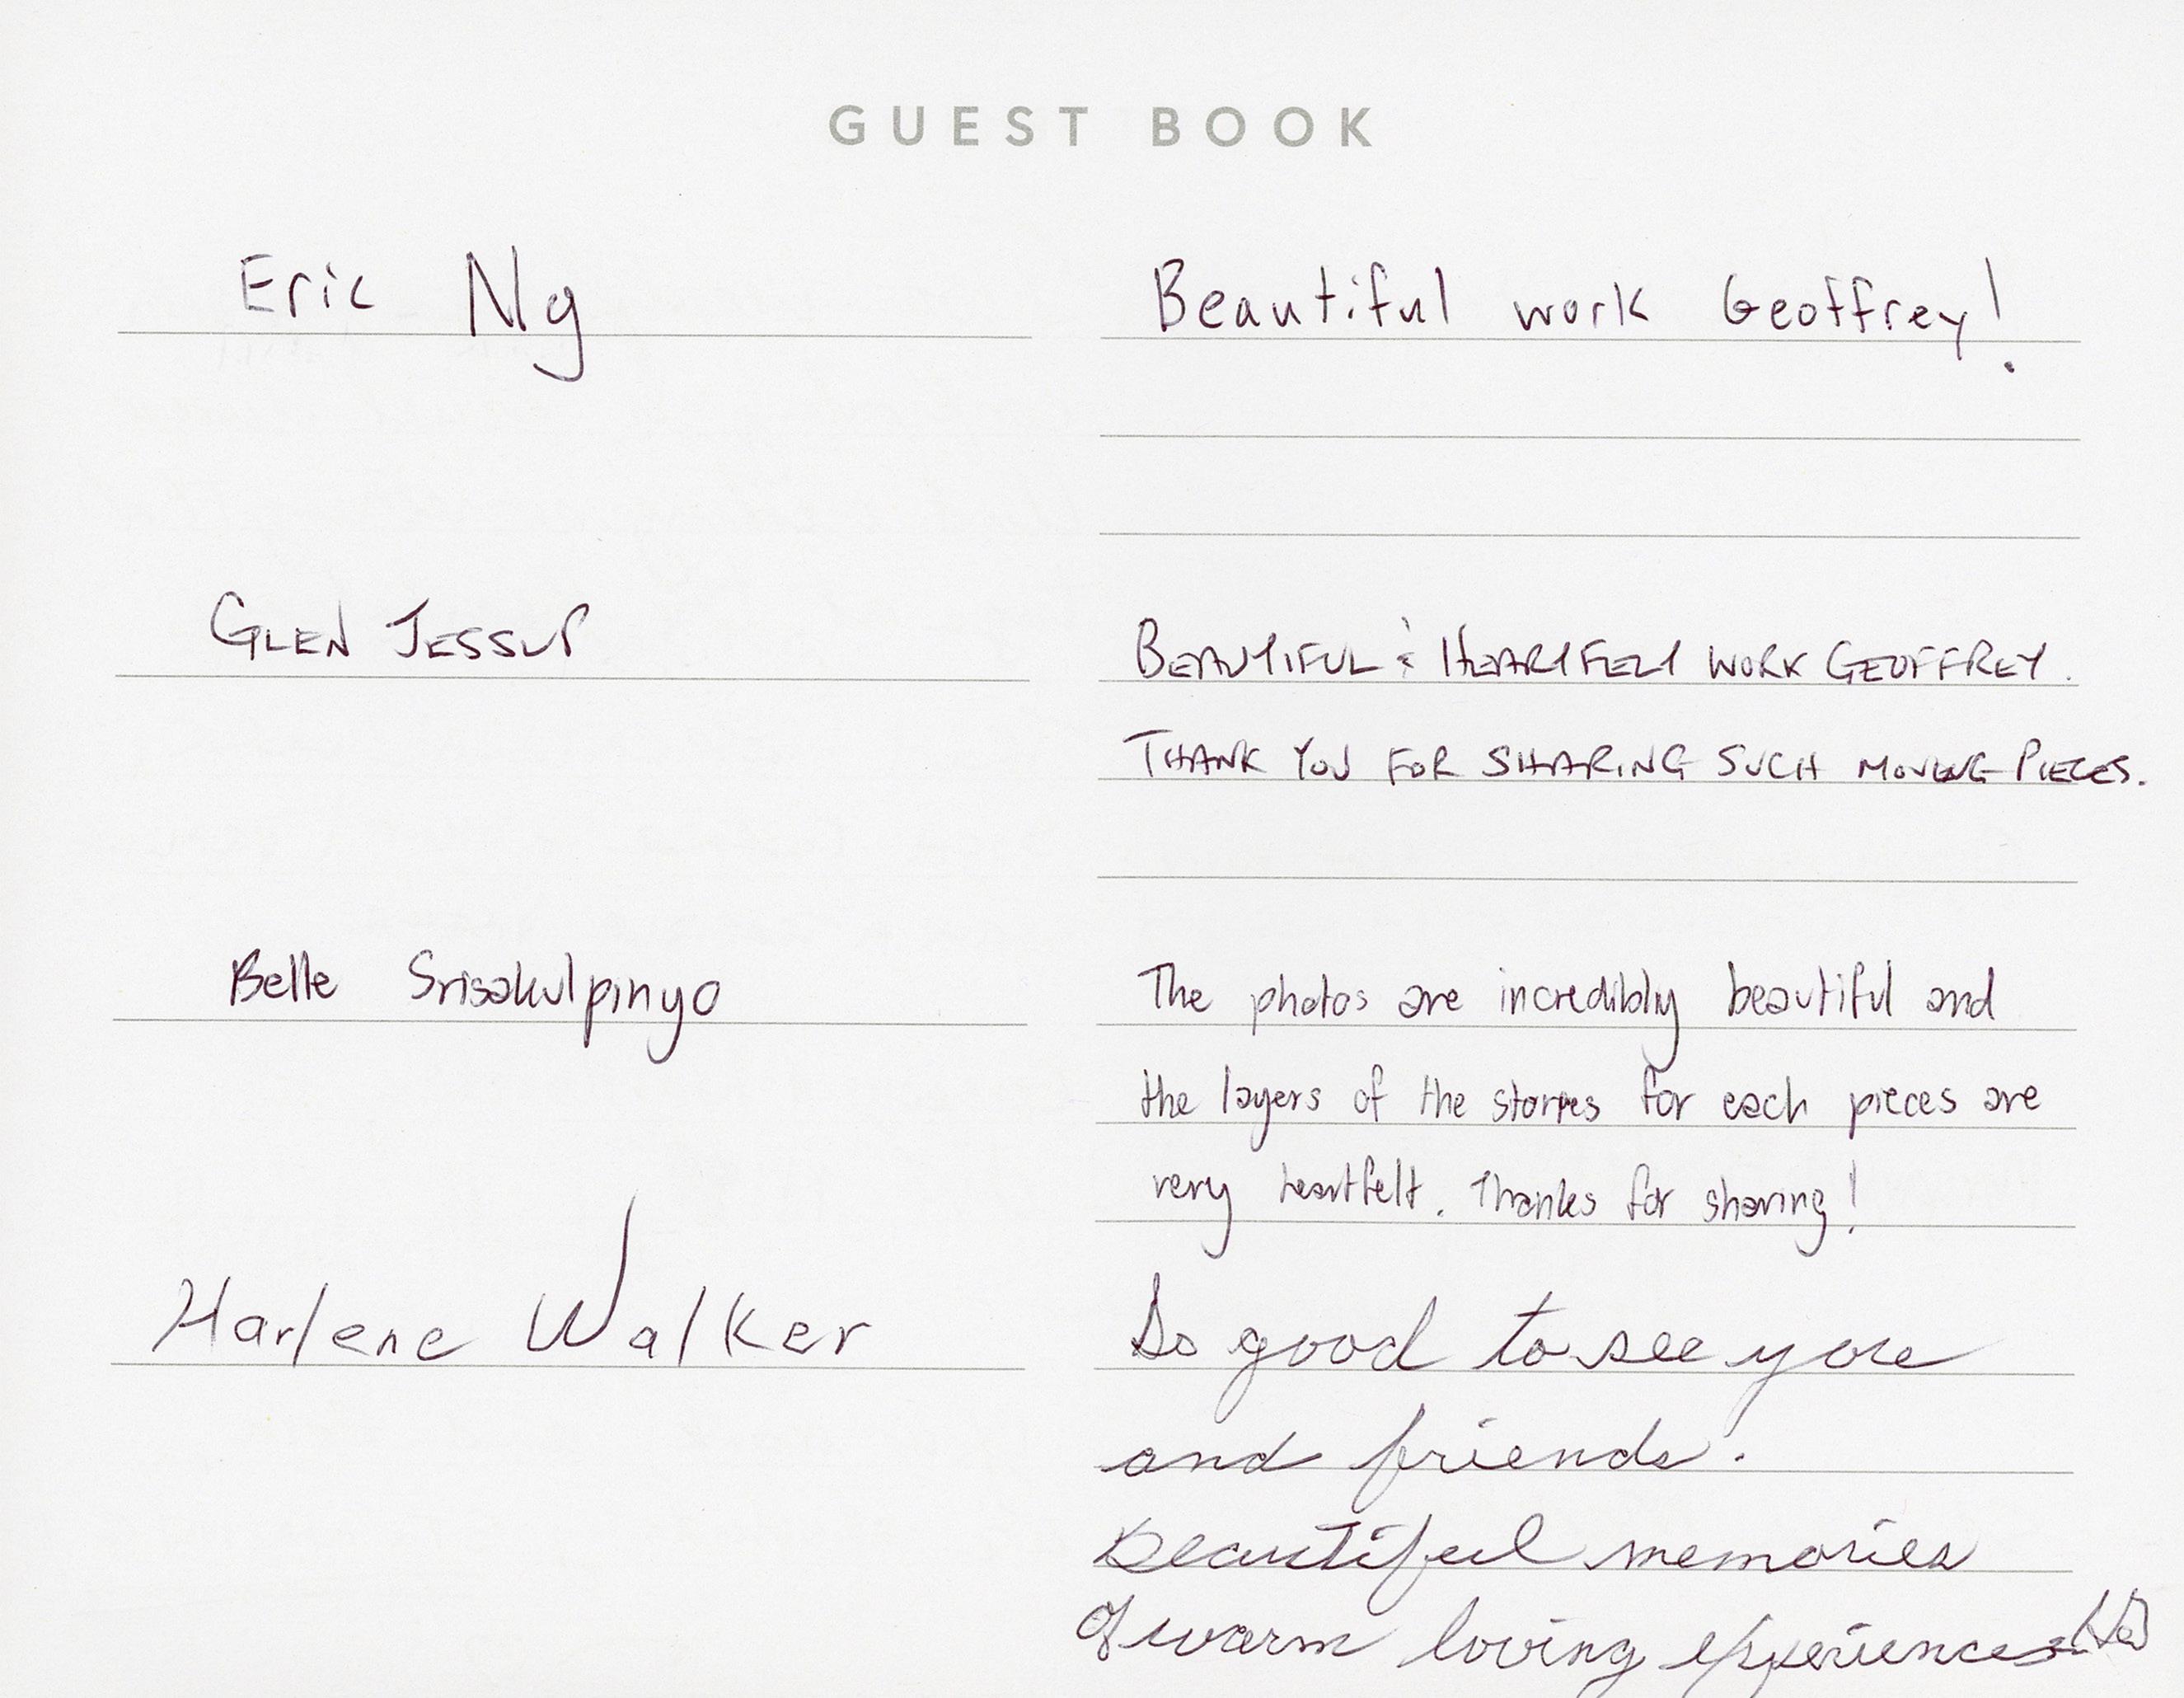 GUEST BOOK
Eric Ng
Beautiful work Geoffrey!
GLEN JESSUP
BEAUTIFUL & HEARTFELT WORK GEOFFREY.
THANK YOU FOR SHARING SUCH MOVING PIECES.
Belle Srisakulpinyo
The photos are incredibly beautiful and
the layers of the stories for each pieces are
very heartfelt. Thanks for sharing!
Harlene Walker
So good to see you
and friends.
Beautiful memories
of warm loving experiences